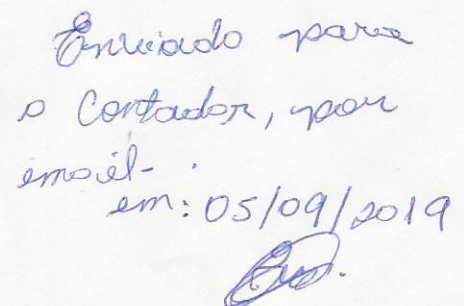 Enviado para
o Contador, por
email- .
em: 05/09/2019